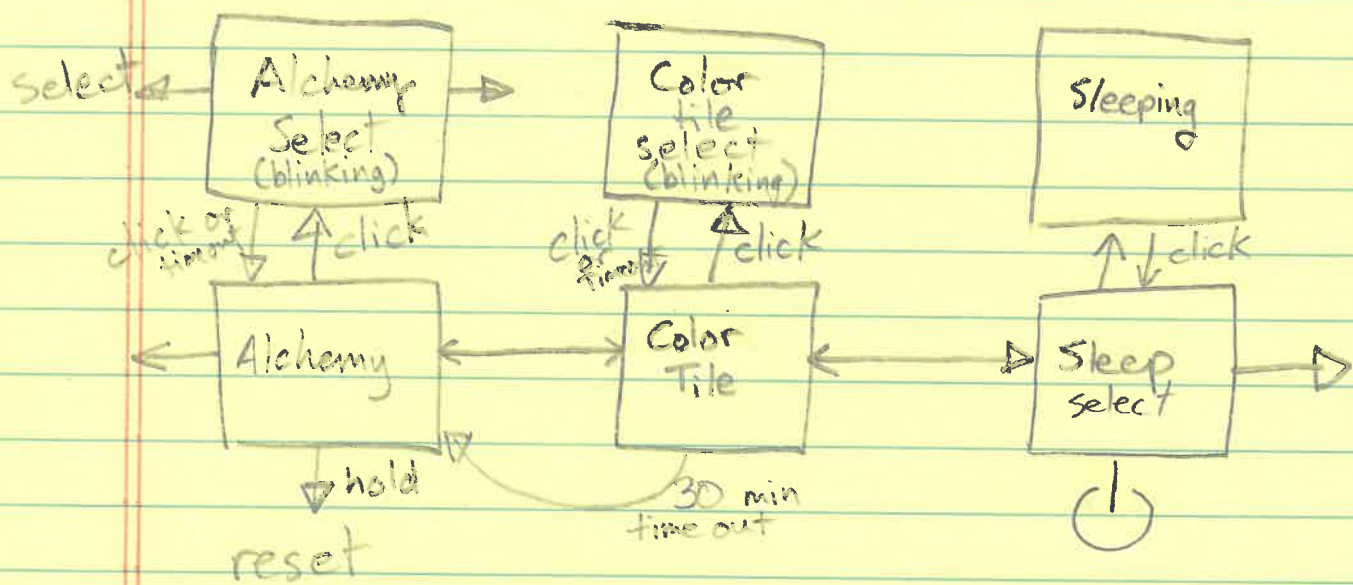 select
Alchemy
Select
(blinking)
Color
tile
select
(blinking)
Sleeping
click or
timeout
click
click
or
timeout
click
click
Alchemy
Color
Tile
Sleep
select
hold
30 min
time out
reset